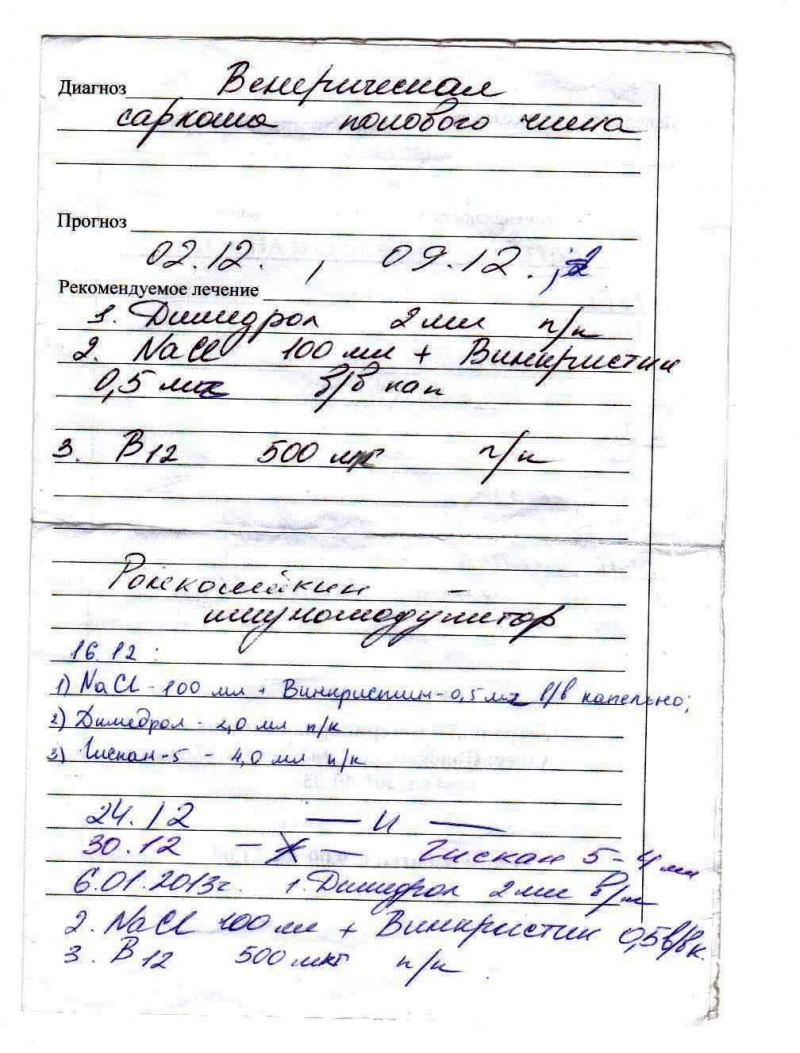 Диагноз Венерическая
саркома полового члена
Прогноз
02.12. , 09.12.
Рекомендуемое лечение
1. Димедрол 2 мл п/к
2. NaCl 100 мл + Винкристин
0,5 мг в/в кап
3. В12 500 мкг п/к
Ронколейкин –
имуномодулятор
16.12 :
1) NaCl - 100 мл + Винкристин - 0,5 мг в/в капельно;
2) Димедрол - 2,0 мл п/к
3) Гискан-5 - 4,0 мл п/к
24.12 — и —
30.12 — — Гискан 5 - 4 мл
6.01.2013г. 1. Димедрол 2 мл в/м
2. NaCl 100 мл + Винкристин 0,5 в/в к.
3. В12 500 мкг п/к